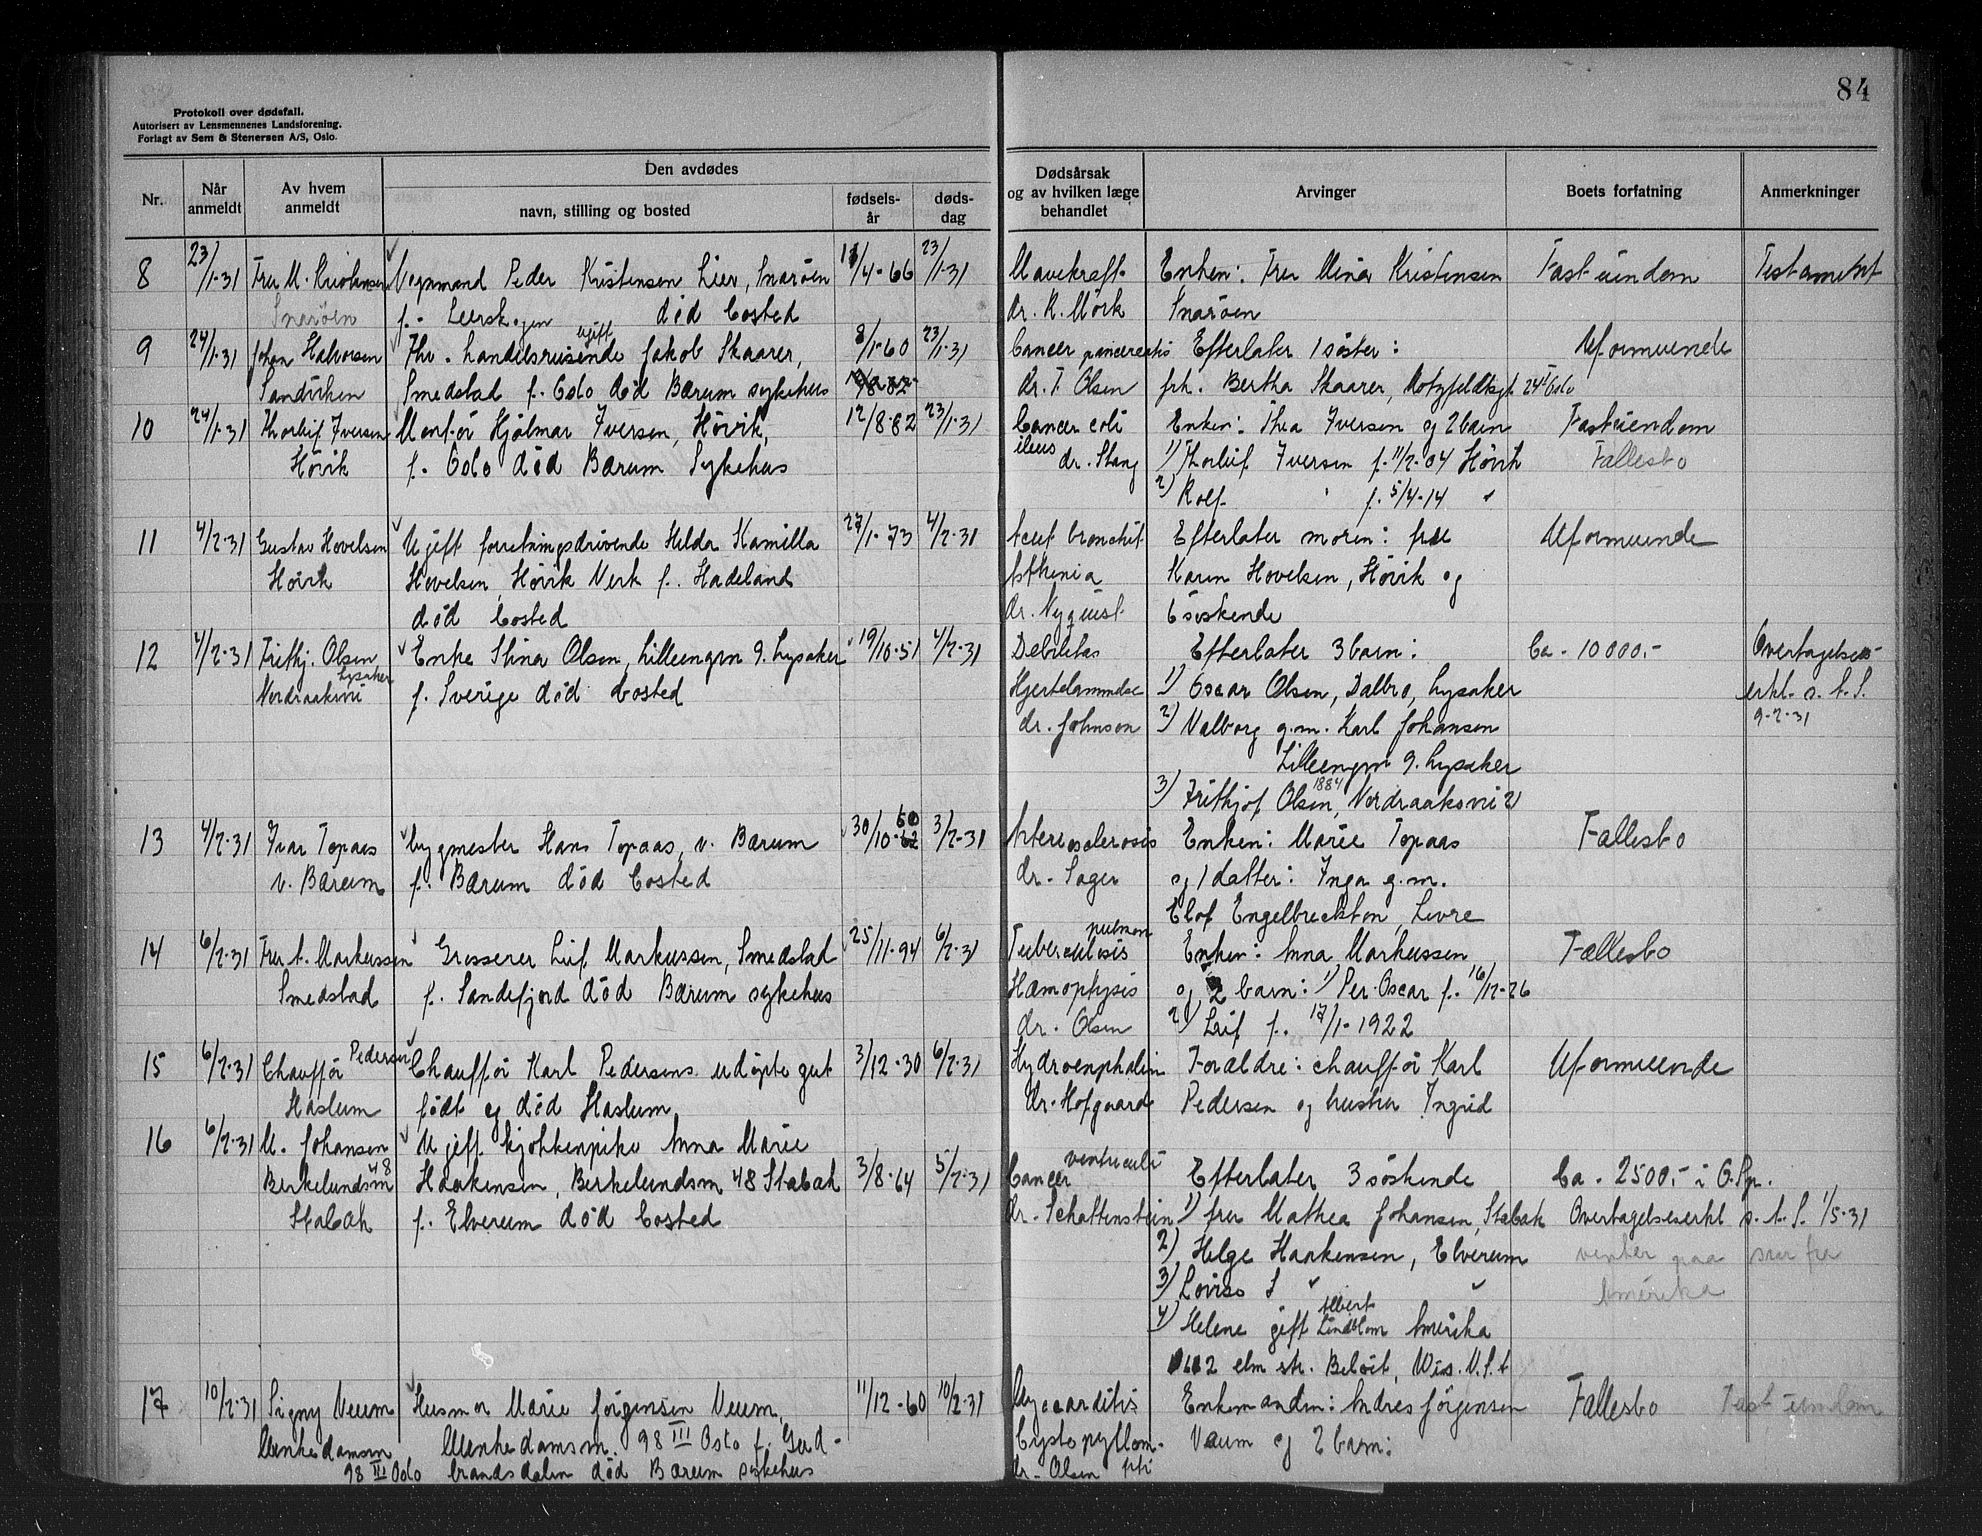 84
Protokoll over dødsfall.
Autorisert av Lensmennenes Landsforening.
Forlagt av Sem & Stenersen A/S, Oslo.
Nr. Når anmeldt Av hvem anmeldt Den avdødes navn, stilling og bosted fødselsår dødsdag Dødsårsak og av hvilken læge behandlet Arvinger Boets forfatning Anmerkninger
8 23/1-31 Fru M. Kristensen Vognmand Peder Kristensen Lier, Snarøen 11/4-66 23/1-31 Mavekræft Enken: Fru Mina Kristensen Fast eiendom Testamentet
Snarøen f. Leerskogen død bosted dr. R. Mörk Snarøen
9 24/1-31 Johan Halvorsen Fhv. handelsreisende ugift Jakob Skaarer, 8/1-60 23/1-31 Cancer pancreatis Efterlater 1 søster: Uformuende
Sandviken Smedstad f. Oslo død Bærum sykehus dr. T. Olsen frk. Bertha Skaarer, Motzfeldtsgt 24 I Oslo
10 24/1-31 Thorleif Iversen Montør Hjalmar Iversen, Høvik, 12/8-82 23/1-31 Cancer coli Enken: Thea Iversen og 2 barn Fast eiendom
Høvik f. Oslo død Bærum Sykehus ileus dr. Stang 1) Thorleif Iversen f. 11/2-04 Høvik Fællesbo
2) Rolf " f. 5/4-14 "
11 4/2-31 Gustav Hovelsen Ugift forretningsdrivende Hilda Kamilla 27/1-73 4/2-31 Acut bronchit Efterlater moren: fru Uformuende
Høvik Hovelsen, Høvik Verk f. Hadeland Asthenia Karen Hovelsen, Høvik og
død bosted dr. Nyquist 6 søskende
12 4/2-31 Frithj. Olsen, Enke Stina Olsen, Lilleengvn 9. Lysaker 19/10-51 4/2-31 Debilitas Efterlater 3 barn: Ca. 10000.- Overtagelses-
Nordraaksvei Lysaker f. Sverige død bosted Hjertelammelse 1) Oscar Olsen, Dalbro, Lysaker erkl. s. t. S.
dr. Johnson 2) Valborg g.m. Karl Johansen 9-2-31
Lilleengvn 9. Lysaker
3) Frithjof Olsen, 1884 Nordraaksvei 2
13 4/2-31 Ivar Topaas Bygmester Hans Topaas, v. Bærum 30/10-60 3/2-31 Arteriosclerosis Enken: Marie Topaas Fællesbo
v. Bærum f. Bærum død bosted dr. Sager og 1 datter: Inga g.m.
Elof Engelbrecktson, Levre
14 6/2-31 Fru A. Markussen Grosserer Leif Markussen, Smedstad 25/11-94 6/2-31 Tuberculosis pulmon Enken: Anna Markussen Fællesbo
Smedstad f. Sandefjord død Bærum sykehus Hæmophysis og 2 barn: 1) Per Oscar f. 16/12-26
dr. Olsen 2) Leif f. 17/1-1922
15 6/2-31 Chauffør Pedersen Chauffør Karl Pedersens udøpte gut 3/12-30 6/2-31 Forældre: chauffør Karl Uformuende
Haslum født og død Haslum dr. Hofgaard Pedersen og hustru Ingrid
16 6/2-31 M. Johansen Ugift kjøkkenpike Anna Marie
Berkelundsvn 48 Haakensen, Berkelundsvn 48 Stabæk 3/8-64 5/2-31 Cancer ventriculi Efterlater 3 søskende Ca. 2500.- i O. Sp.
Stabæk f. Elverum død bosted dr. Schattenstein 1) fru Mathea Johansen, Stabæk Overtagelseserkl s. t. S. 1/5-31
2) Helge Haakensen, Elverum venter paa svar fra
3) Lovise S " " Amerika
4) Helene gift Albert Lindblom Amerika
1612 elm str. Beloit, Wis. U.S.A
17 10/2-31 Signy Veum Husmor Marie Jørgensen Veum, 11/12-60 10/2-31 Myocarditis Enkemanden: Andres Jørgensen Fællesbo Fast eiendom
Munkedamsvn Munkedamsvn. 98 III Oslo f. Gud- Veum og 2 barn:
98 III Oslo brandsdalen død Bærum sykehus dr. Olsen